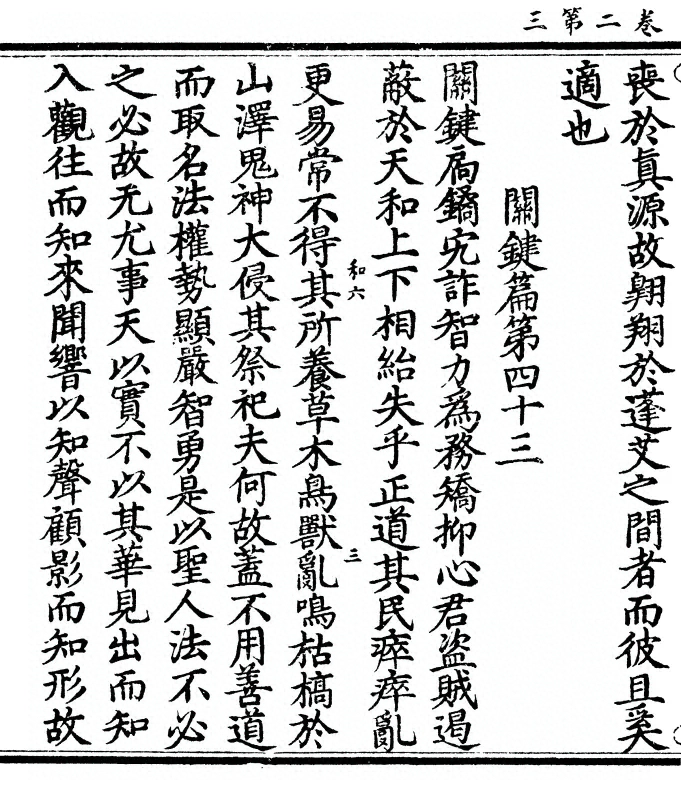 三第二卷
喪於眞源故翺翔於蓬艾之間者而彼且奚
適也
關鍵篇第四十三
關鍵扃鐍宄詐智力爲務矯抑心君盜賊遏
蔽於天和上下相紿失乎正道其民瘁瘁亂
更易常不得其所養草木鳥獸亂鳴枯槁於
和六
三
山澤鬼神大侵其祭祀夫何故蓋不用善道
而取名法權勢顯嚴智勇是以聖人法不必
之必故无尤事天以實不以其華見出而知
入觀往而知來聞響以知聲顧影而知形故